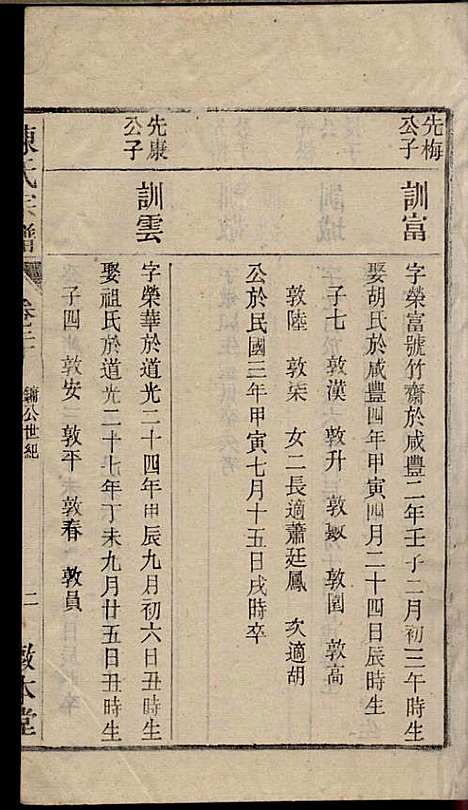 先梅
公子
訓富
字榮富號竹齋於咸豐二年壬子二月初三午時生
娶胡氏於咸豐四年甲寅四月二十四日辰時生
子七 敦漢 敦升 敦 敦園 敦高
敦陸 敦榮 女二長適蕭廷鳳 次適胡
公於民國三年甲寅七月十五日戌時卒
先康
公子
訓雲
字榮華於道光二十四年甲辰九月初六日丑時生
娶祖氏於道光二十七年丁未九月廿五日丑時生
子四 敦安 敦平 敦春 敦員
陳氏宗譜
卷之二十
鏞公世紀
二
敬本堂